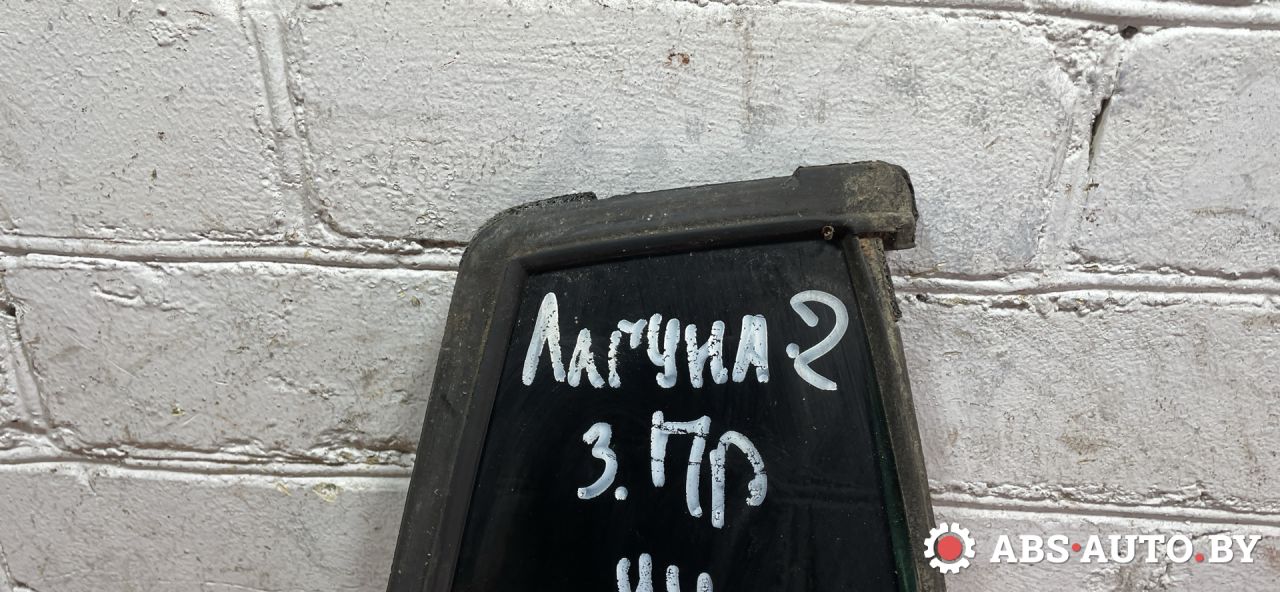 Лагуна.2
3. Пр
ABS·AUTO.BY